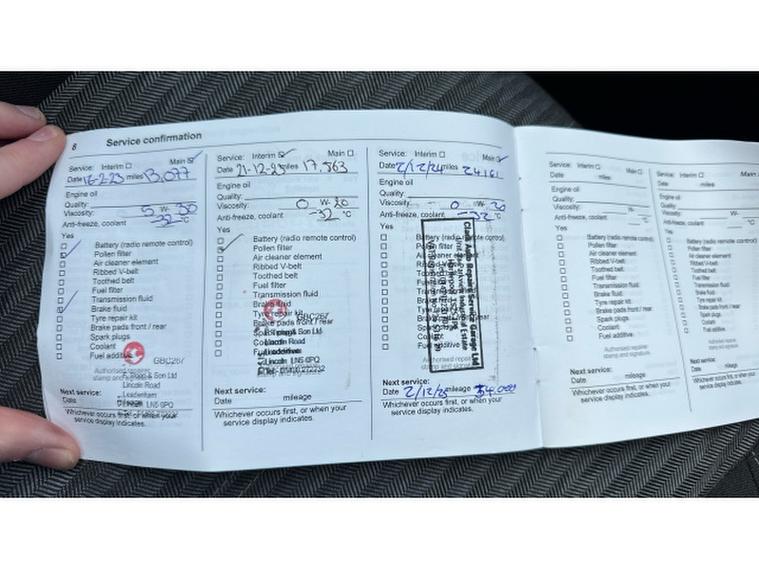 8 Service confirmation
Service: Interim Main
Date 16-2-23 miles 13,077
Engine oil
Quality:
Viscosity: 5 W- 30
Anti-freeze, coolant -32 °C
Yes
Battery (radio remote control)
Pollen filter
Air cleaner element
Ribbed V-belt
Toothed belt
Fuel filter
Transmission fluid
Brake fluid
Tyre repair kit
Brake pads front / rear
Spark plugs
Coolant
Fuel additive
GBC267
Authorised repairer
stamp and signature
& Son Ltd
Lincoln Road
Leadenham
Lincoln LN5 0PQ
Next service:
Date mileage
Whichever occurs first, or when your
service display indicates.
Service: Interim Main
Date 21-12-23 miles 17,563
Engine oil
Quality:
Viscosity: 0 W- 20
Anti-freeze, coolant -32 °C
Yes
Battery (radio remote control)
Pollen filter
Air cleaner element
Ribbed V-belt
Toothed belt
Fuel filter
Transmission fluid
Brake fluid
Tyre repair kit
GBC267
Brake pads front / rear
Spark plugs
Coolant
Fuel additive
& Son Ltd
Lincoln LN5 0PQ
Next service:
Date mileage
Whichever occurs first, or when your
service display indicates.
Service: Interim Main
Date 2/12/24 miles 24161
Engine oil
Quality:
Viscosity: 0 W- 20
Anti-freeze, coolant -32 °C
Yes
Battery (radio remote control)
Pollen filter
Air cleaner element
Ribbed V-belt
Toothed belt
Fuel filter
Transmission fluid
Brake fluid
Tyre repair kit
Brake pads front / rear
Spark plugs
Coolant
Fuel additive
Auto Repair Service Garage Ltd
Authorised repairer
stamp and signature
Next service:
Date 2/12/25 mileage 34,000
Whichever occurs first, or when your
service display indicates.
Service: Interim Main
Date miles
Engine oil
Quality:
Viscosity: W-
Anti-freeze, coolant °C
Yes
Battery (radio remote control)
Pollen filter
Air cleaner element
Ribbed V-belt
Toothed belt
Fuel filter
Transmission fluid
Brake fluid
Tyre repair kit
Brake pads front / rear
Spark plugs
Coolant
Fuel additive
Authorised repairer
stamp and signature
Next service:
Date mileage
Whichever occurs first, or when your
service display indicates.
Service: Interim Main
Date miles
Engine oil
Quality:
Viscosity: W-
Anti-freeze, coolant °C
Yes
Battery (radio remote control)
Pollen filter
Air cleaner element
Ribbed V-belt
Toothed belt
Fuel filter
Transmission fluid
Brake fluid
Tyre repair kit
Brake pads front / rear
Spark plugs
Coolant
Fuel additive
Authorised repairer
stamp and signature
Next service:
Date mileage
Whichever occurs first, or when your
service display indicates.